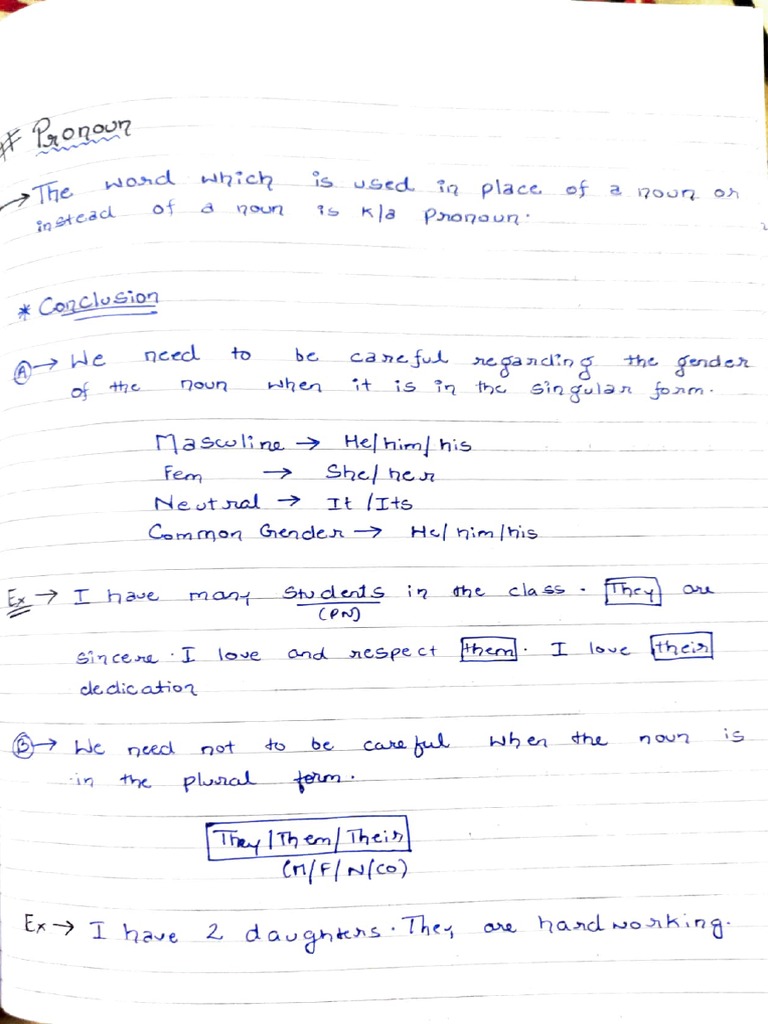 # Pronoun
→ The word which is used in place of a noun or
instead of a noun is k/a pronoun.
* Conclusion
(A) → We need to be careful regarding the gender
of the noun when it is in the singular form.
Masculine → He/him/his
Fem → She/her
Neutral → It/Its
Common Gender → He/him/his
Ex → I have many students in the class. They are
(PN)
sincere. I love and respect them. I love their
dedication
(B) → We need not to be careful when the noun is
in the plural form.
They/Them/Their
(M/F/N/CO)
Ex → I have 2 daughters. They are hardworking.